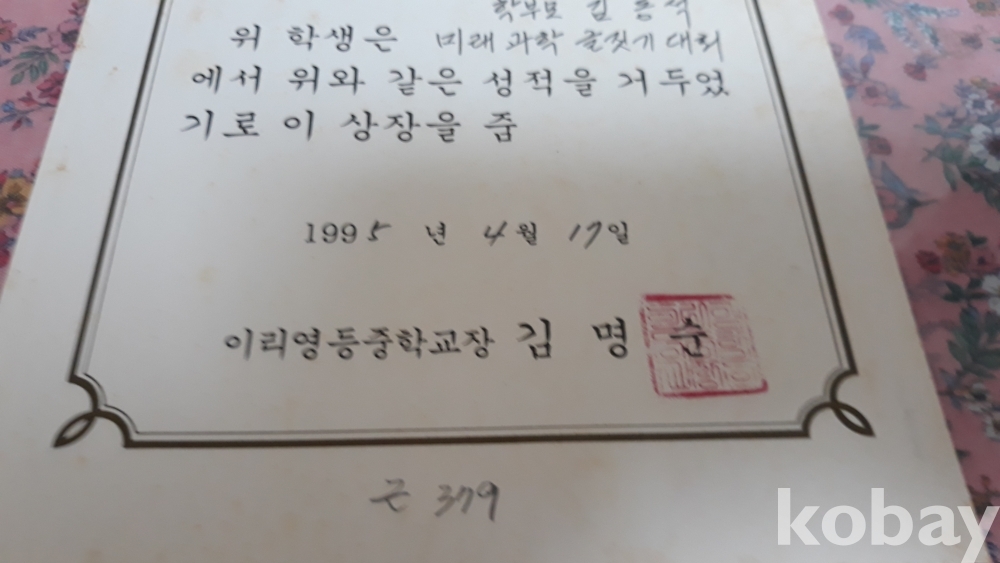 학부모 김 동석
위 학생은 미래 과학 글짓기 대회
에서 위와 같은 성적을 거두었
기로 이 상장을 줌
1995 년 4월 17일
이리영등중학교장 김 명 순
근 379
kobay